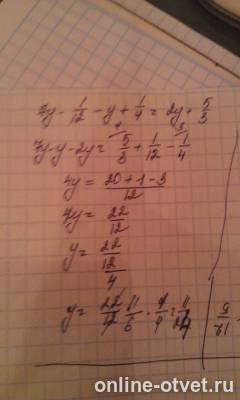 7y - 1/12 - y + 1/4 = 2y + 5/3
7y - y - 2y = 5/3 + 1/12 - 1/4
4y = 20+1-3/12
4y = 22/12
y = 22/12/4
y = 22/12 11/6 · 1/4 = 11/24
online-otvet.ru